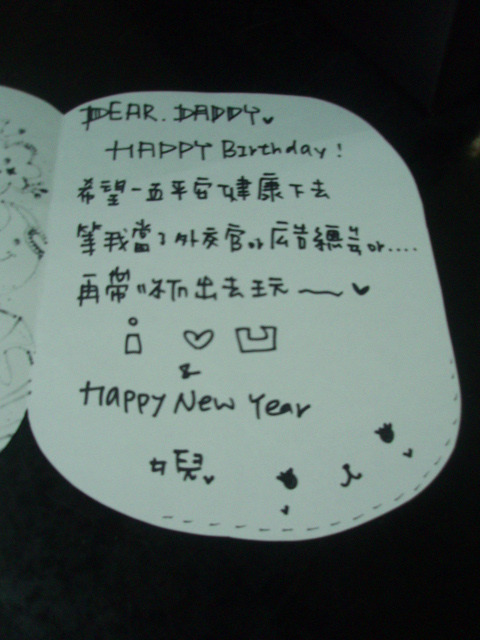 DEAR. DADDY
HAPPY Birthday!
希望一直平安健康下去
等我當了外交官or廣告總監or....
再帶你們出去玩～
i ♡ U
&
Happy New Year
女兒